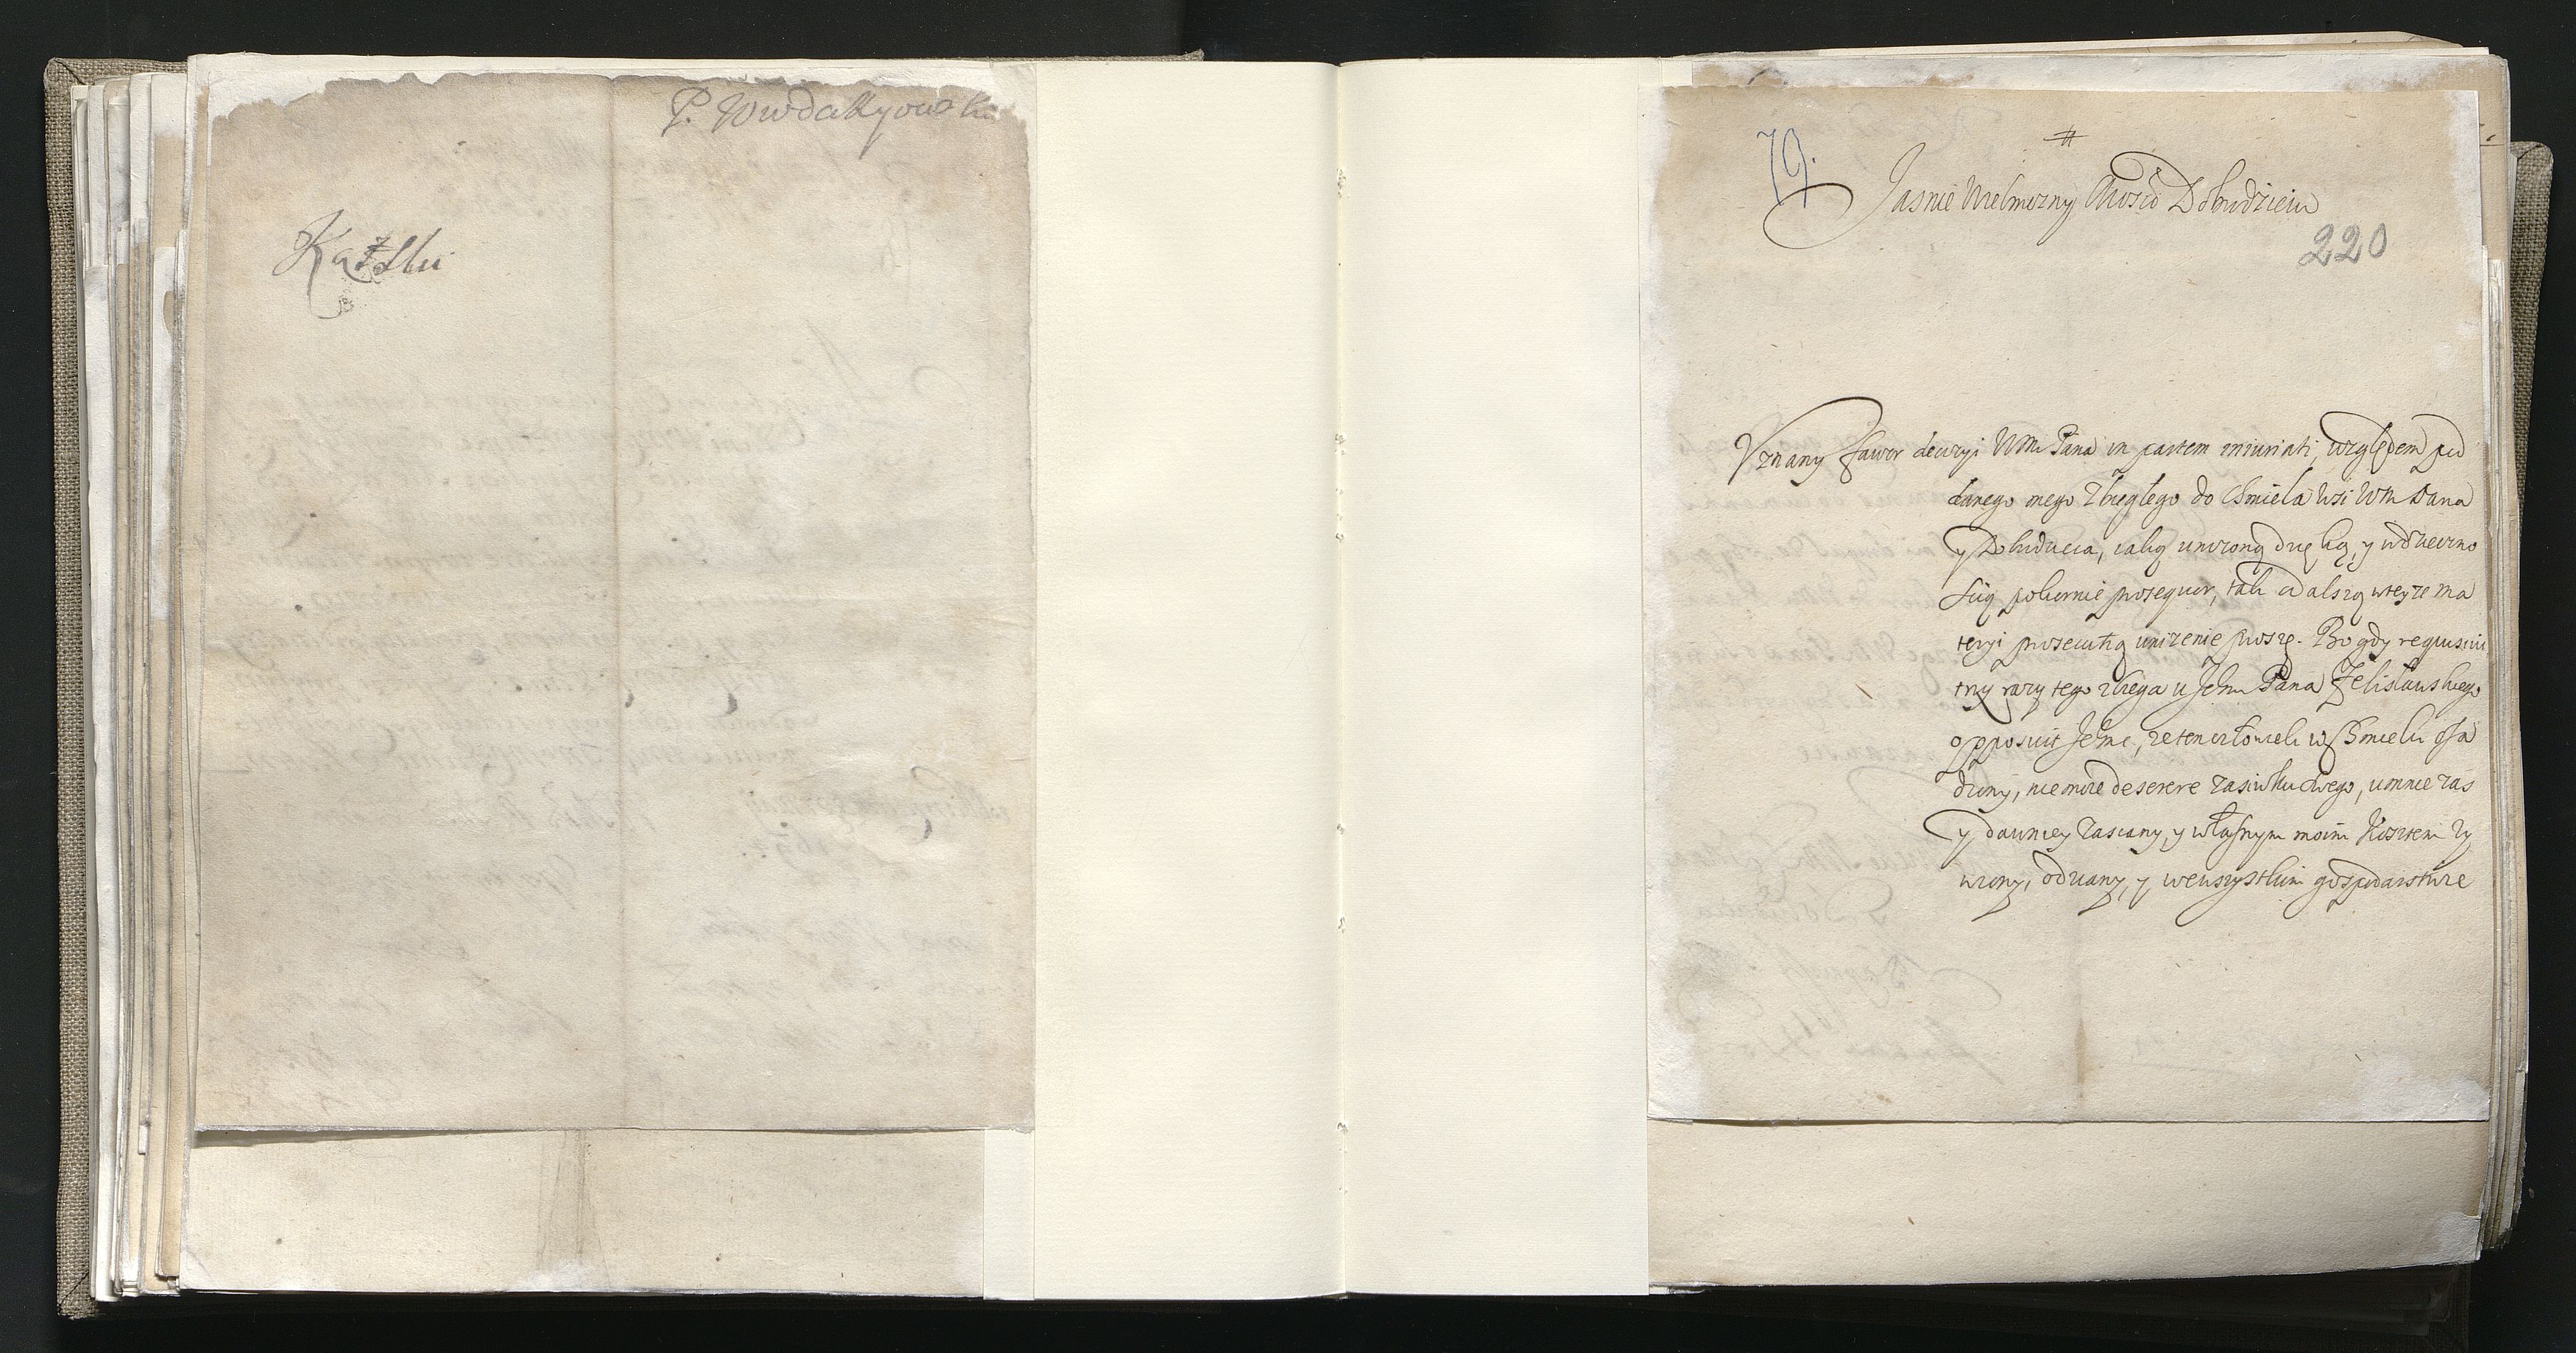 P. Wwdakyowski
Kątski
79.
#
Jasnie Wielmozny Mosci Dobrodzieiu
220
Vznany fawor decizyi WM Pana in partem iniuriati, względem pod
danego mego zbiegłego do Chmiela wsi WM Pana
y Dobrodzieia, iako unizoną dzięką, y wdzieczno
scią pokornie prosequor, tak o dalszą wteyze ma
teryi prosecutią unizenie proszę. Bo gdy requisiui
trzy razy tego zbiega u Jehm Pana Zelisławskiego
opposuit Jehmc, ze ten człowiek w Chmielu osa
dzony, nie moze deserere zasiwku swego, u mnie zas
y dawniey zasiany, y własnym moim kosztem zy
wiony, odziany, y wewszystkim gospodarstwie